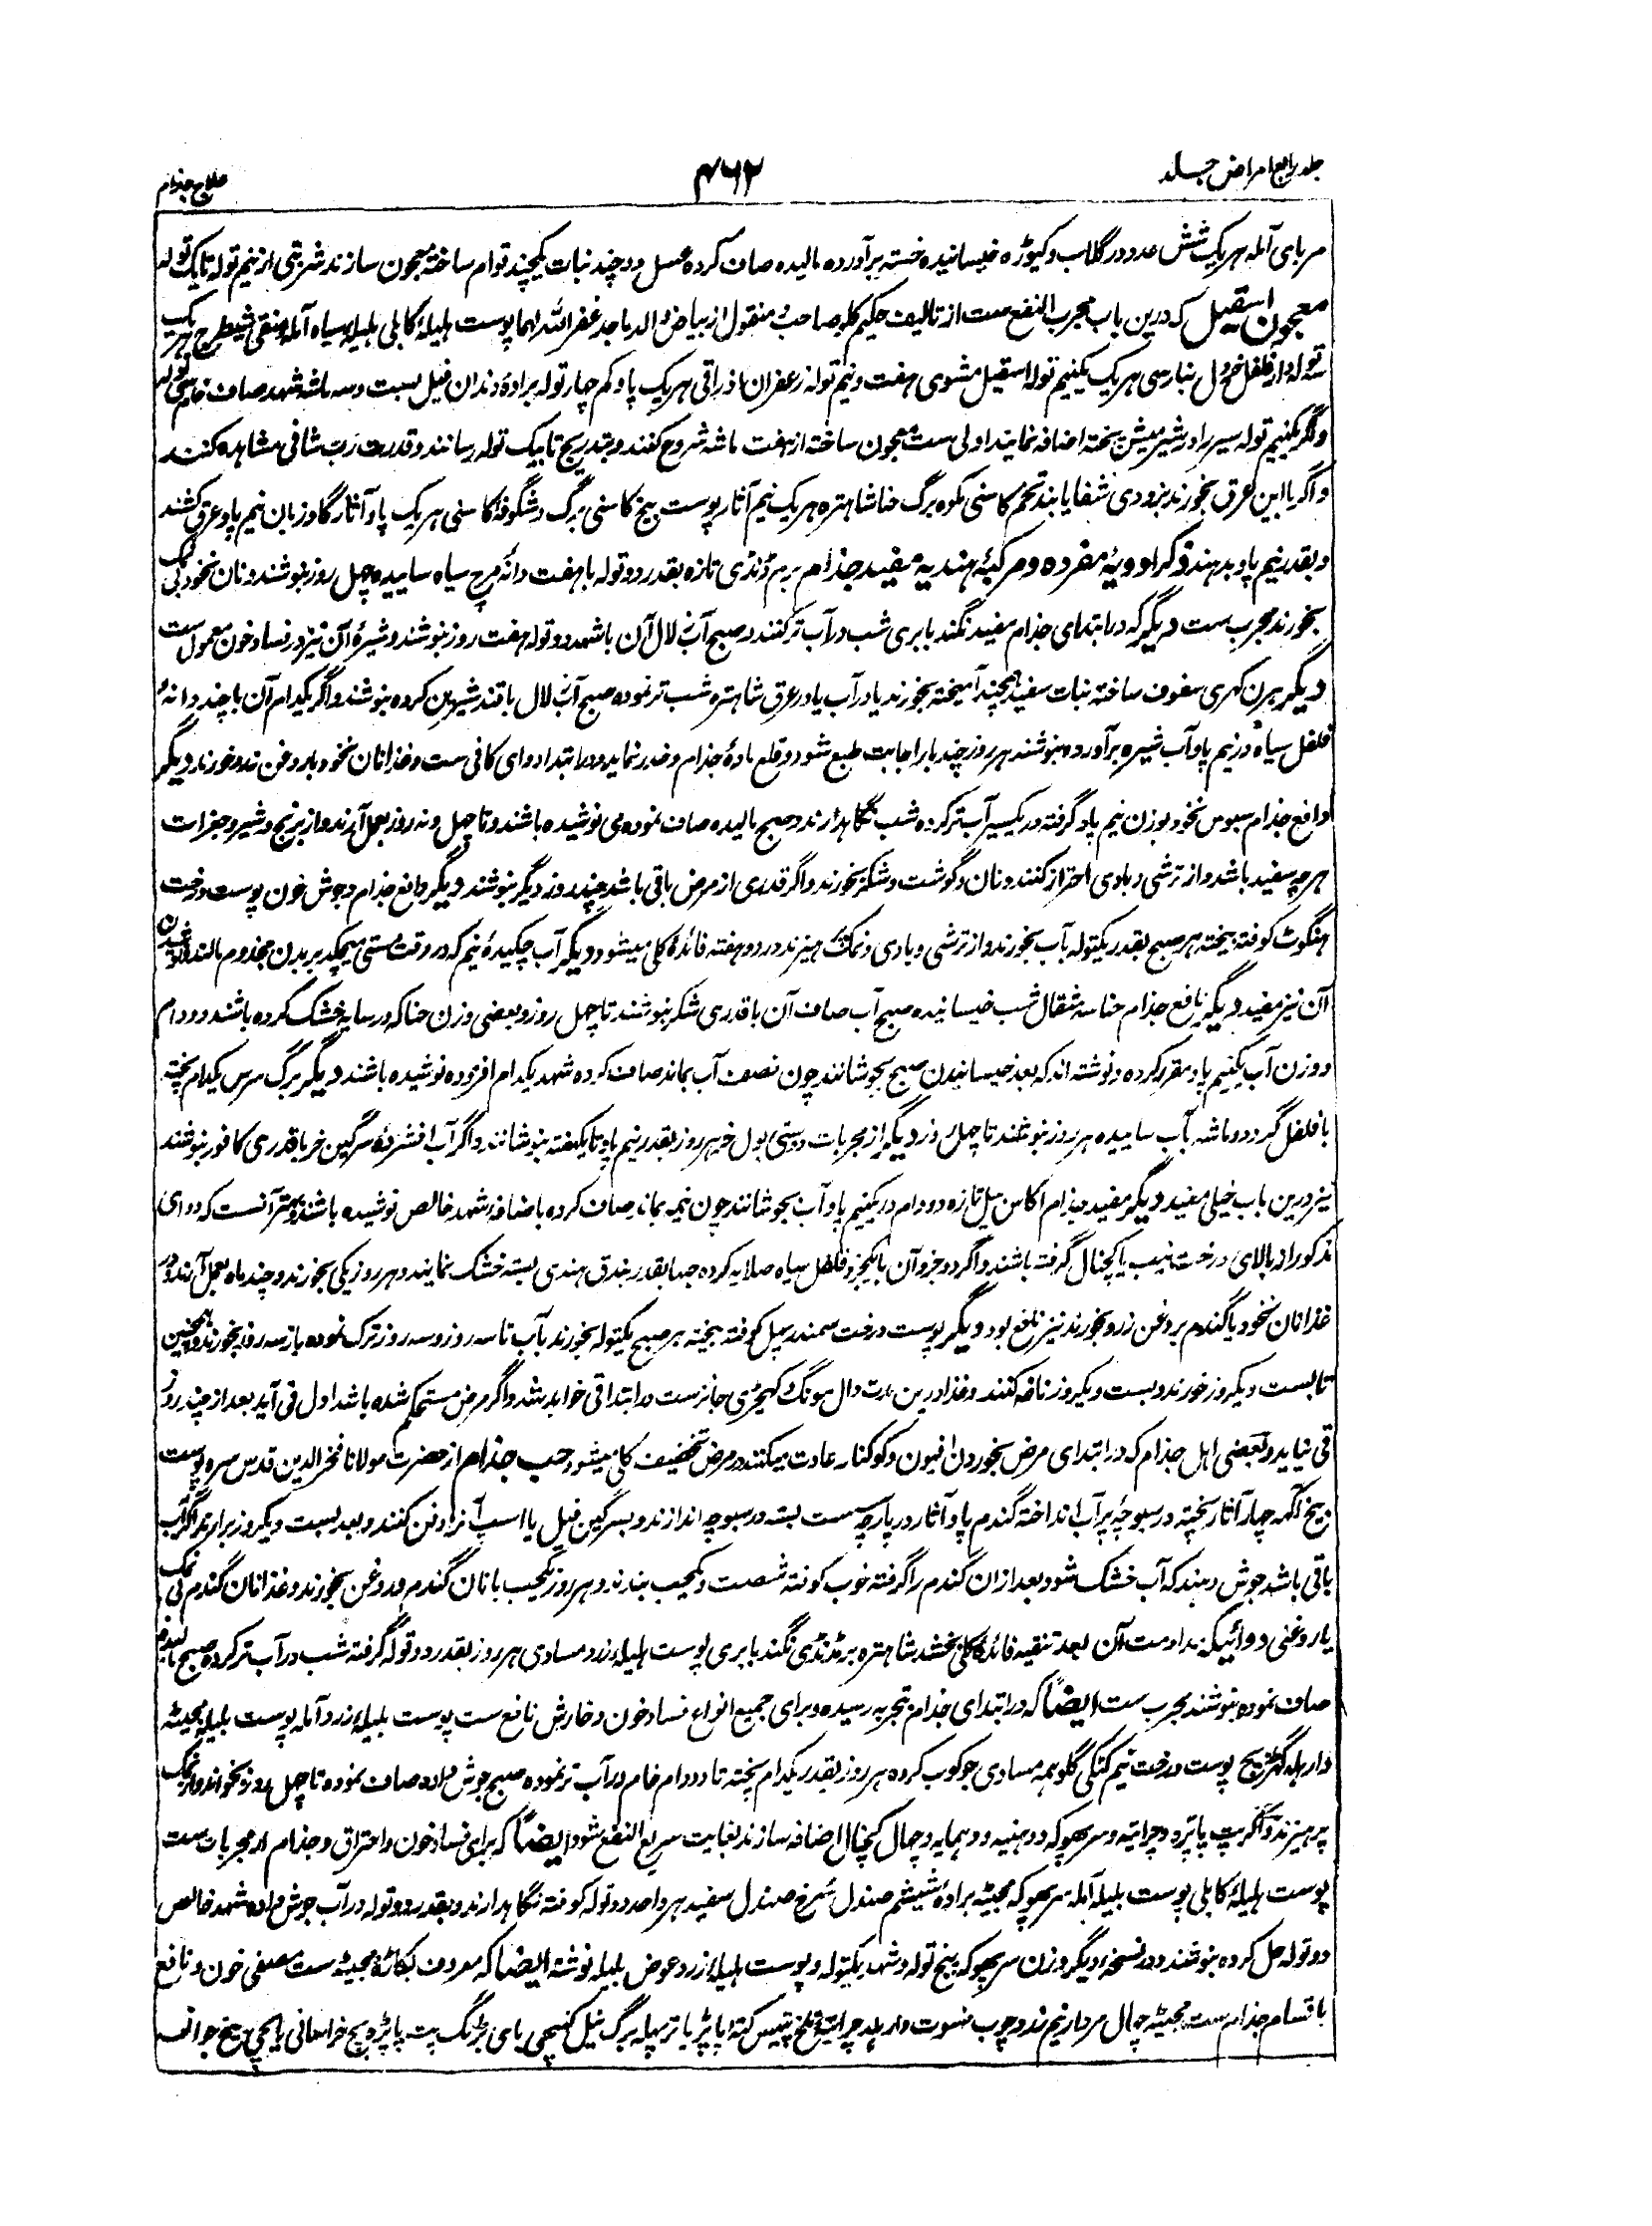 جلد رابع امراض جلد
۴۶۲
علاج جذام
مربای آمله هر یک شش عدد در گلاب و کیوڑه خیسانیده خسته برآورده مالیده صاف کرده عسل دوچند نبات یکچند قوام ساخته معجون سازند شربتی از نیم توله تا یک توله
معجون اسقیل که درین باب مجرب النفع ست از تالیف حکیم کلو صاحب منقول از بیاض والد ماجد غفرالله لهما پوست هلیلۀ کابلی هلیلۀ سیاه آمله منقی شیطرج هر یک
توله دارفلفل خردل بنارسی هر یک یکنیم توله اسقیل مشوی هفت و نیم توله زعفران اذراقی هر یک پاو کم چهار توله برادۀ دندان فیل بست و سه ماشه شهد صاف خام سی توله
و اگر یکنیم توله سیر را در شیر میش پخته اضافه نمایند اولی ست معجون ساخته از هفت ماشه شروع کنند و بتدریج تا بیک توله رسانند و قدرت رب شافی مشاهده کنند
و اگر با این عرق بخورند بزودی شفا یابند تخم کاسنی مکوه برگ حنا شاهتره هر یک نیم آثار پوست بیخ کاسنی برگ و شگوفۀ کاسنی هر یک پاو آثار گاوزبان نیم پاو عرق کشند
و بقدر نیم پاو بدهند ذکر ادویۀ مفرده و مرکبۀ هندیه مفید جذام برم ڈنڈی تازه بقدر دو توله با هفت دانۀ مرچ سیاه ساییده چهل روز بنوشند و نان نخود بی نمک
بخورند مجرب ست دیگر که در ابتدای جذام مفید نگند بابری شب در آب تر کنند و صبح آب زلال آن با شهد دو توله هفت روز بنوشند و شیرۀ آن نیز در فساد خون معمول ست
دیگر برن کهری سفوف ساخته نبات سفید همچند آمیخته بخورند یا در آب یا در عرق شاهتره شب تر نموده صبح آب زلال با قند شیرین کرده بنوشند و اگر یکدام آن با چند دانۀ
فلفل سیاه در نیم پاو آب شیره برآورده بنوشند هر روز چند بار اجابت طبع شود و قلع مادۀ جذام و خدر نماید و در ابتدا دوای کافی ست و غذا نان نخود با روغن زرد خورند دیگر
دافع جذام سبوس نخود بوزن نیم پاو گرفته در یکسیر آب تر کرده شب نگاهدارند و صبح مالیده صاف نموده می نوشیده باشند و تا چهل و نه روز بعمل آرند و از برنج و شیر و جغرات
هر چه سفید باشد و از ترشی و بادی احتراز کنند و نان و گوشت و شکر بخورند و اگر قدری از مرض باقی باشد چند روز دیگر بنوشند دیگر دافع جذام و جوش خون پوست درخت
هنگوٹ کوفته بیخته هر صبح بقدر یکتوله بآب بخورند و از ترشی و بادی و نمک پرهیزند در دو هفته فائدۀ کلی میشود دیگر آب چکیدۀ نیم که در وقت مستی میچکد بر بدن مجذوم مالند و نوشیدن
آن نیز مفید دیگر نافع جذام حنا سه مثقال شب خیسانیده صبح آب صاف آن با قدری شکر بنوشند تا چهل روز و بعضی وزن حنا که در سایه خشک کرده باشند دو دام
و وزن آب یکنیم پاو مقرر کرده و نوشته اند که بعد خیسانیدن صبح بجوشانند چون نصف آب بماند صاف کرده شهد یکدام افزوده نوشیده باشند دیگر برگ سرس یکدام پخته
با فلفل گرد دو ماشه بآب ساییده هر روز بنوشند تا چهل روز دیگر از مجربات دوستی بول خر هر روز بقدر نیم پاو تا یکهفته بنوشانند و اگر آب افشردۀ سرگین خر با قدری کافور بنوشند
نیز درین باب خیلی مفید دیگر مفید جذام اکاس بیل تازه دو دام در یکنیم پاو آب بجوشانند چون نیمه بماند صاف کرده باضافۀ شهد خالص نوشیده باشند و بهتر آنست که دوای
مذکور از بالای درخت نیب یا کچنال گرفته باشند و اگر دو جزو آن با یکجزو فلفل سیاه صلایه کرده حبها بقدر بندق هندی بسته خشک نمایند و هر روز یکی بخورند و چند ماه بعمل آرند و در
غذا نان نخود یا گندم بروغن زرد بخورند نیز نافع بود دیگر پوست درخت سمندر پهل کوفته بیخته هر صبح یکتوله بخورند بآب تا سه روز و سه روز ترک نموده باز سه روز بخورند و همچنین
تا بست و یکروز خورند و بست و یکروز ناغه کنند و غذا درین مدت دال مونگ و کهچڑی جائزست در ابتدا قی خواهد شد و اگر مرض مستحکم شده باشد اول قی آید بعد از چند روز
قی نیاید و بعضی اهل جذام که در ابتدای مرض بخوردن افیون و کوکنار عادت میکنند در مرض تخفیف کلی میشود حب جذام از حضرت مولانا فخرالدین قدس سره پوست
بیخ آکهه چهار آثار پخته در سبوچۀ پر آب انداخته گندم پاو آثار در پارچه سست بسته در سبوچه اندازند و بسرگین فیل یا اسپ آنرا دفن کنند و بعد بست و یکروز برآرند اگر آب
باقی باشد جوش دهند که آب خشک شود بعد ازان گندم را گرفته خوب کوفته شصت و یکحب بندند و هر روز یکحب با نان گندم و روغن بخورند و غذا نان گندم بی نمک
یا روغنی دوائیکه مداومت آن بعد تنقیه فائدۀ کلی بخشد شاهتره برم ڈنڈی نگند بابری پوست هلیلۀ زرد مساوی هر روز بقدر دو توله گرفته شب در آب تر کرده صبح
صاف نموده بنوشند مجرب ست ایضاً که در ابتدای جذام بتجربه رسیده و برای جمیع انواع فساد خون و خارش نافع ست پوست هلیلۀ زرد آمله پوست بلیله مجیٹه
دارهلد گهڑ بچ پوست درخت نیم کٹکی گلو همه مساوی جوکوب کرده هر روز بقدر یکدام پخته تا دو دام خام در آب تر نموده صبح جوش داده صاف نموده تا چهل روز بخورند و از نمک
پرهیزند و اگر پت پاپڑه و چرائته و سرپهوکه و دهنیه و دهمایه و چهال کچنال اضافه سازند بغایت سریع النفع شود ایضاً که برای فساد خون و احتراق و جذام از مجربات ست
پوست هلیلۀ کابلی پوست بلیله آمله سرپهوکه مجیٹه برادۀ شیشم صندل سرخ صندل سفید هر واحد دو توله کوفته نگاهدارند و بقدر دو توله در آب جوش داده شهد خالص
دو توله حل کرده بنوشند و در نسخۀ دیگر وزن سرپهوکه پنج توله و شهد یکتوله و پوست هلیلۀ زرد عوض بلیله نوشته ایضاً که معروف بکاڑۀ مجیٹه ست مصفی خون و نافع
باقسام جذام ست مجیٹه چهال مردار نیم زرد چوب نسوت دارهلد چرائتۀ تلخ پتیس کتها پاپڑیا ترپهله برگ نیل کنهچی بای بڑنگ پت پاپڑه بچ خراسانی بابچی بیخ جوانسه